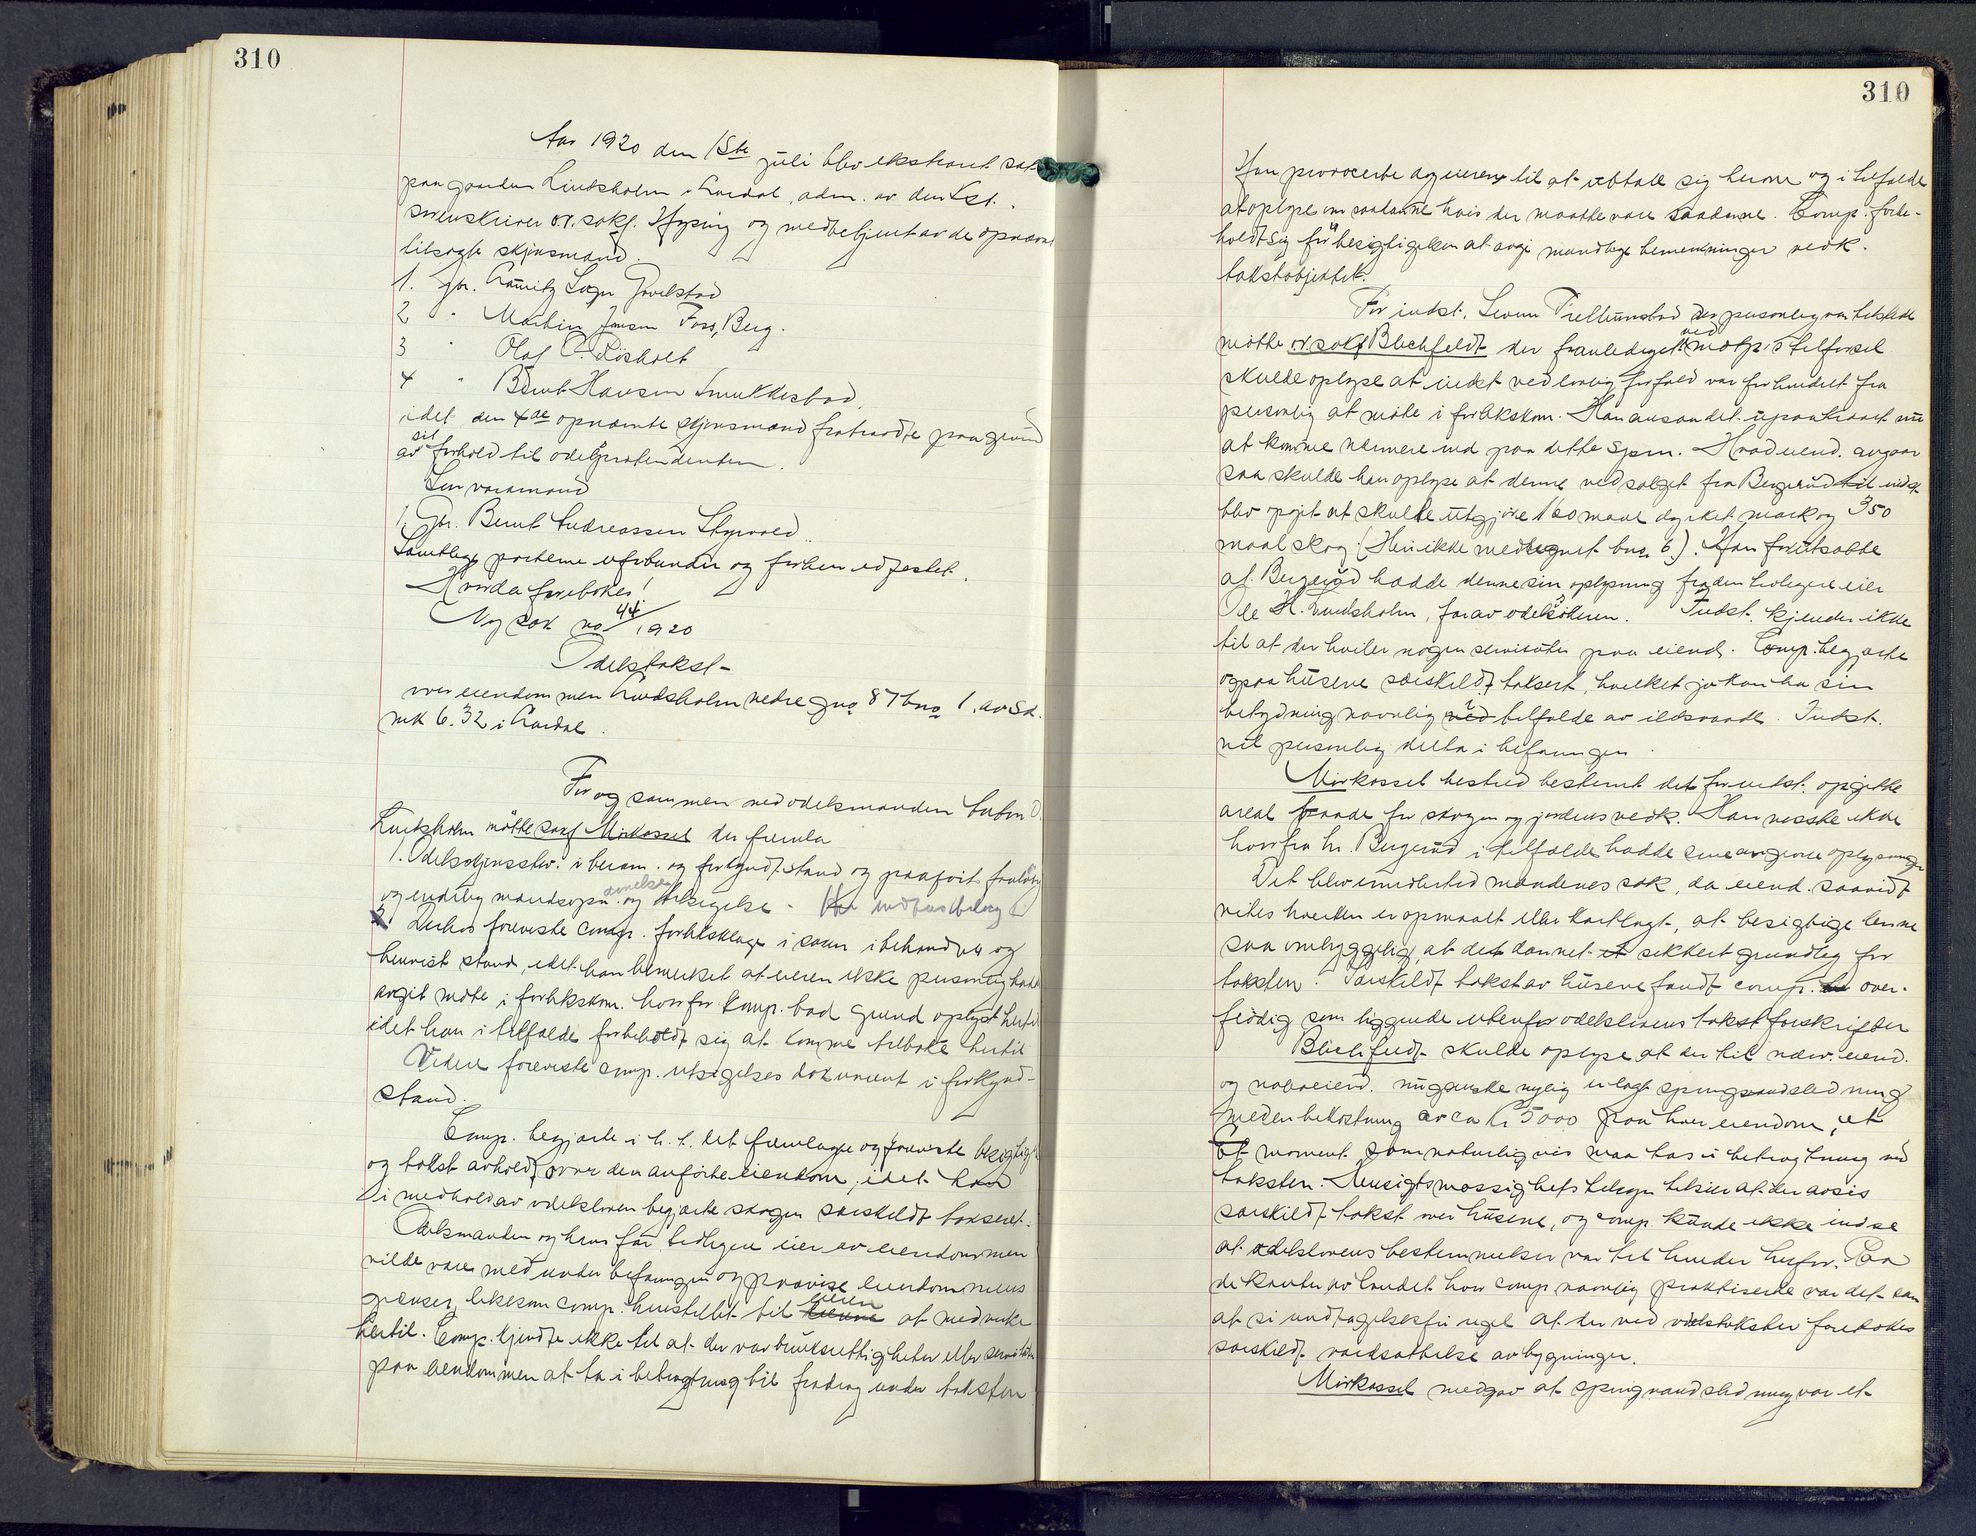 310
Aar 1920 den 15de juli blev ekstraret sat
paa gaarden Lindsholm i Lardal, adm. av den kst.
sorenskriver o.r. sakf. Hysing og medbetjent av de opnævnte
tilsagte skjønsmænd.
1. Gbr. Lauritz Sogn Gavelstad
2 " Martin Jensen Foss, Berg.
3 " Olaf C. Løsholt
4 " Bernt Hansen Smukkestad.
idet den 4de opnævnte skjønsmand fratraadte paa grund
av sit forhold til odelspretendenten.
Som varamand
1. Gbr. Bernt Andreassen Styrvold.
Samtlige parterne uforbundne og forhen edfæstet.
Hvorda foretokes!
Ny sak no 44/1920
Odelstakst
over eiendommen Lindsholm nedre gno 87 bno 1. av sk.
mk 6.32 i Lardal.
For og sammen med odelsmanden
Lindsholm møtte sakf Mørkassel der fremla
1. Odelsskjønsstev. i beram. og forkyndt stand og paaført foreløbig
og endelig mandsopnævnelse og tilsigelse
2. Derhos foreviste comp. forliksklage i saken i behandlet og
henvist stand, idet han bemerket at eieren ikke personlig hadde
avgit møte i forlikskom. hvorfor komp. bad grund oplyst hertil
idet han i tilfælde forbeholdt sig at komme tilbake hertil
Videre foreviste comp. utsigelses dokument i forkynd-
stand.
Comp. begjærte i h. t. det fremlagte og foreviste besigtigelse
og takst avholdt over den anførte eiendom, idet han
i medhold av odelsloven begjærte skogen særskildt taksert.
Odelsmanden og hans far, tidligere eier av eiendommen
vilde være med under befaringen og paavise eiendommens
grænser, likesom comp. henstillet til eieren at medvirke
hertil. Comp. kjendte ikke til at der var bruksrettigheter eller servituter
paa eiendommen at ta i betragtning til fradrag under taksten
310
Han provocerte ag eieren til at uttale sig herom og i tilfælde
at oplyse om saadanne hvis der maatte være saadanne. Comp. forbe-
holdt sig før besigtigelsen at avgi mundtlige bemerkninger vedk.
takstobjektet.
For indst. Søren Trellumstad der personlig var tilstede
møtte or sakf Blechfeldt der foranlediget ved motp's tilførsel
skulde oplyse at indst ved lovlig forfald var forhindret fra
personlig at møte i forlikskom. Han ansaa det upaakrævet nu
at komme nærmere ind paa dette spsm. Hvad eiend. angaar
saa skulde han oplyse at denne ved salget fra Bergerud til indst
blev opgit at skulle utgjøre 160 maal dyrket mark og 350
maal skog (Heri ikke medregnet bno 6). Han forutsatte
at Bergerud hadde denne sin oplysning fra den tidligere eier
Ole H. Lindsholm, far av odelssøkeren. Indst. kjender ikke
til at der hviler nogen servituter paa eiend. Comp. begjærte
ogsaa husene særskildt taksert, hvilket jo kan ha sin
betydning navnlig i tilfælde av ildsvaade. Indst.
vil personlig delta i befaringen.
Mørkassel bestred bestemt det for indst. opgitte
areal baade for skogen og jordens vedk. Han visste ikke
hvorfra hr. Bergerud i tilfælde hadde sine avgivne oplysninger
Det blev imidlertid mændenes sak, da eiend. saavidt
vites hverken er opmaalt eller kartlagt, at besigtige denne
saa omhyggelig, at det dannet et sikkert grundlag for
taksten. Særskildt takst av husene fandt comp. over-
flødig som liggende utenfor odelslovens takst forskrifter
Blechfeldt skulde oplyse at der til nærv. eiend.
og naboeiend. nu ganske nylig er lagt springvandsledning
med en bekostning circa kr 5000 paa hver eiendom, et
moment som naturligvis maa tas i betragtning ved
taksten. Hensigtsmæssighets hensyn tilsier at der avsis
særskildt takst over husene, og comp. kunde ikke indse
at odelslovens bestemmelser var til hinder herfor. Paa
de kanter av landet hvor comp navnlig praktiserte var det saa
at si undtagelsesfri regel at der ved odelstakster foretokes
særskildt værdsættelse av bygninger.
Mørkassel medgav at springvandsledning var et